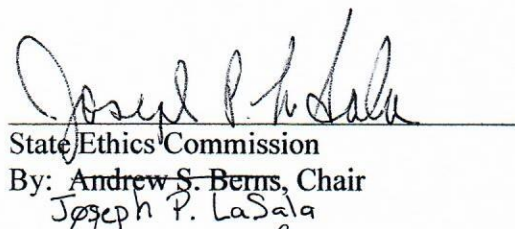 Joseph P. LaSala
State Ethics Commission
By: Andrew S. Berns, Chair
Joseph P. LaSala